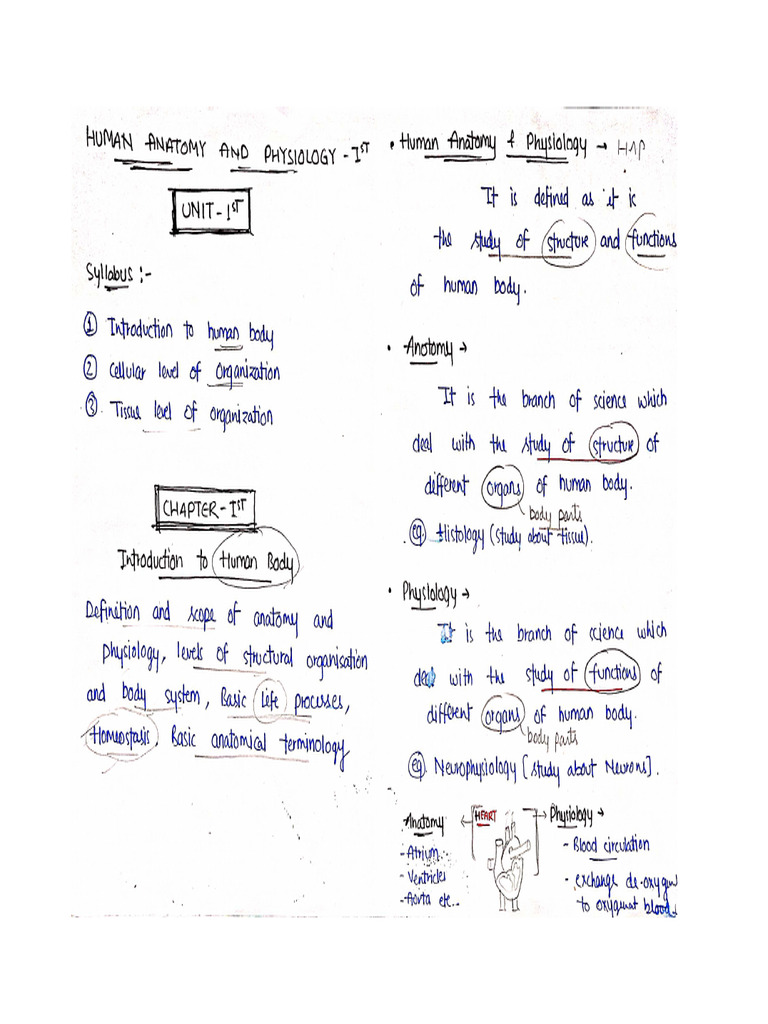 HUMAN ANATOMY AND PHYSIOLOGY - IST
UNIT - IST
Syllabus :-
① Introduction to human body
② Cellular level of organization
③ Tissue level of organization
CHAPTER - IST
Introduction to Human Body
Definition and scope of anatomy and
physiology, levels of structural organisation
and body system, Basic life processes,
Homeostasis, Basic anatomical terminology
• Human Anatomy & Physiology → HAP
It is defined as it is
the study of structure and functions
of human body.
• Anatomy →
It is the branch of science which
deal with the study of structure of
different organs of human body.
body parts
eg. Histology (study about tissue).
• Physiology →
It is the branch of science which
deal with the study of functions of
different organs of human body.
body parts
eg. Neurophysiology [study about Neurons].
Anatomy ← HEART → Physiology →
- Atrium.
- Ventricles
- Aorta etc...
- Blood circulation
- exchange de-oxygen
to oxygenat blood